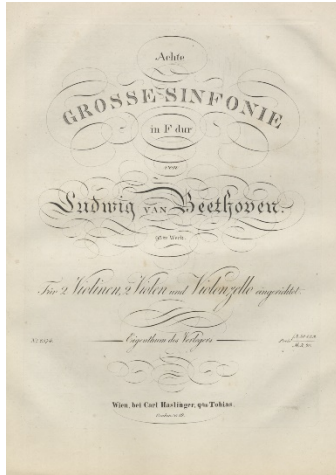 Achte
GROSSE SINFONIE
in F dur
von
Ludwig VAN Beethoven.
Für 2 Violinen, 2 Violen und Violonzello eingerichtet.
Eigenthum des Verlegers
Wien, bei Carl Haslinger, qm Tobias.